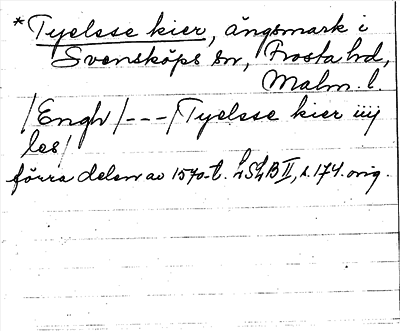 *Tyelsse kier, ängsmark i
Svensköps sn, Frosta hd,
Malm. l.
/Engh/---/Tyelsse kier iiij
les/
förra delen av 1570-t. LSLB II, s. 174. orig.